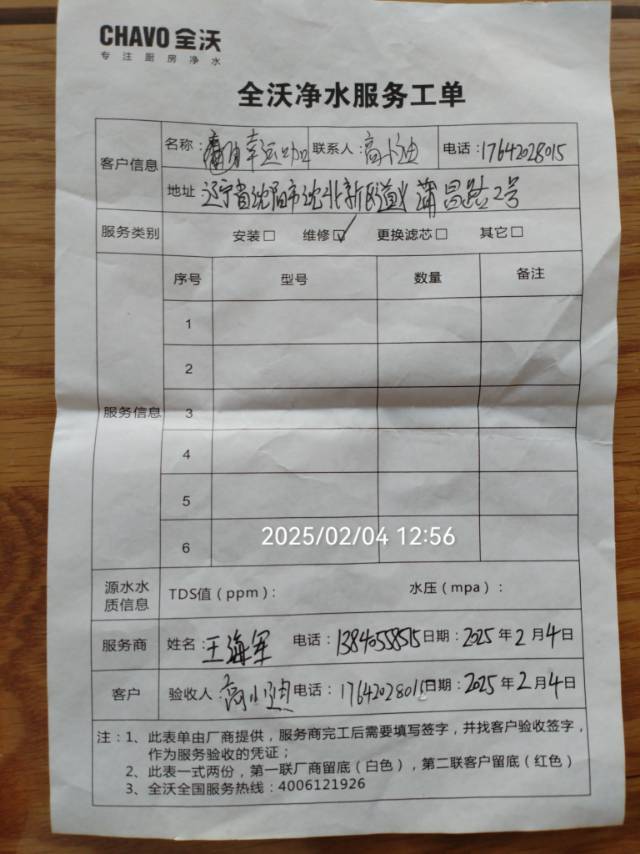 CHAVO 全沃
专注厨房净水
全沃净水服务工单
客户信息
名称: 幸运咖 联系人: 高小迪 电话: 17642028015
地址 辽宁省沈阳市沈北新区道义 蒲昌路2号
服务类别 安装□ 维修☑ 更换滤芯□ 其它□
服务信息
序号 型号 数量 备注
1
2
3
4
5
6
2025/02/04 12:56
源水水质信息 TDS值(ppm): 水压(mpa):
服务商 姓名: 王海军 电话: 13840558515 日期: 2025年2月4日
客户 验收人: 高小迪 电话: 17642028015 日期: 2025年2月4日
注:1、此表单由厂商提供,服务商完工后需要填写签字,并找客户验收签字,
作为服务验收的凭证;
2、此表一式两份,第一联厂商留底(白色),第二联客户留底(红色)
3、全沃全国服务热线:4006121926